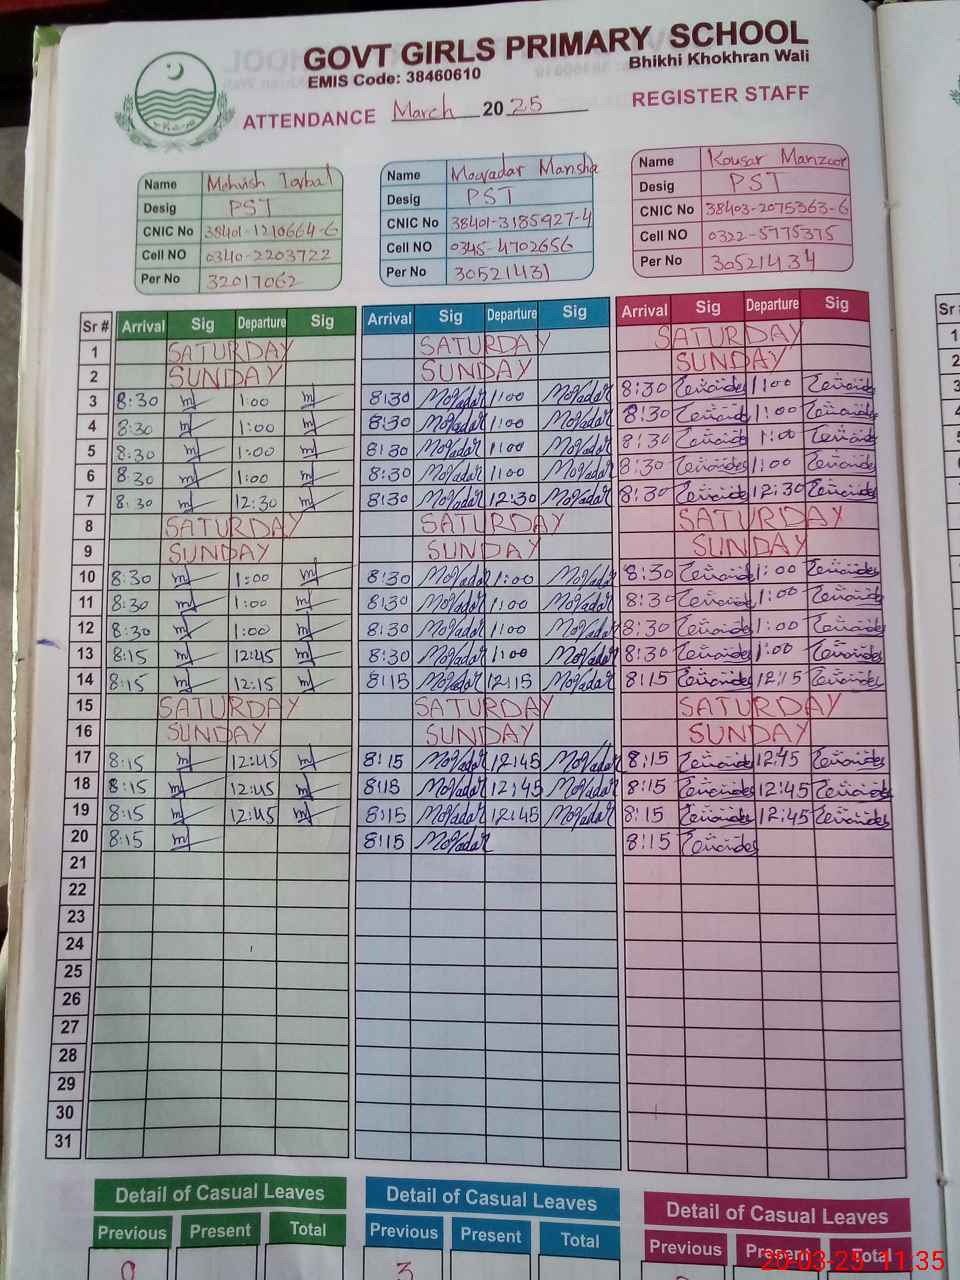 GOVT GIRLS PRIMARY SCHOOL
EMIS Code: 38460610 Bhikhi Khokhran Wali
ATTENDANCE March 2025 REGISTER STAFF
Name Mehvish Iqbal Name Mowadar Mansha Name Kousar Manzoor
Desig PST Desig PST Desig PST
CNIC No 38401-1210664-6 CNIC No 38401-3185927-4 CNIC No 38403-2075363-6
Cell NO 0340-2203722 Cell NO 0345-4702656 Cell NO 0322-5775375
Per No 32017062 Per No 30521431 Per No 30521434
Sr # Arrival Sig Departure Sig Arrival Sig Departure Sig Arrival Sig Departure Sig
1 SATURDAY SATURDAY SATURDAY
2 SUNDAY SUNDAY SUNDAY
3 8:30 1:00 8:30 1:00 8:30 1:00
4 8:30 1:00 8:30 1:00 8:30 1:00
5 8:30 1:00 8:30 1:00 8:30 1:00
6 8:30 1:00 8:30 1:00 8:30 1:00
7 8:30 12:30 8:30 12:30 8:30 12:30
8 SATURDAY SATURDAY SATURDAY
9 SUNDAY SUNDAY SUNDAY
10 8:30 1:00 8:30 1:00 8:30 1:00
11 8:30 1:00 8:30 1:00 8:30 1:00
12 8:30 1:00 8:30 1:00 8:30 1:00
13 8:15 12:45 8:30 1:00 8:30 1:00
14 8:15 12:15 8:15 12:15 8:15 12:15
15 SATURDAY SATURDAY SATURDAY
16 SUNDAY SUNDAY SUNDAY
17 8:15 12:45 8:15 12:45 8:15 12:45
18 8:15 12:45 8:15 12:45 8:15 12:45
19 8:15 12:45 8:15 12:45 8:15 12:45
20 8:15 8:15 8:15
21
22
23
24
25
26
27
28
29
30
31
Detail of Casual Leaves Detail of Casual Leaves Detail of Casual Leaves
Previous Present Total Previous Present Total Previous Present Total
3
20-03-25 11:35